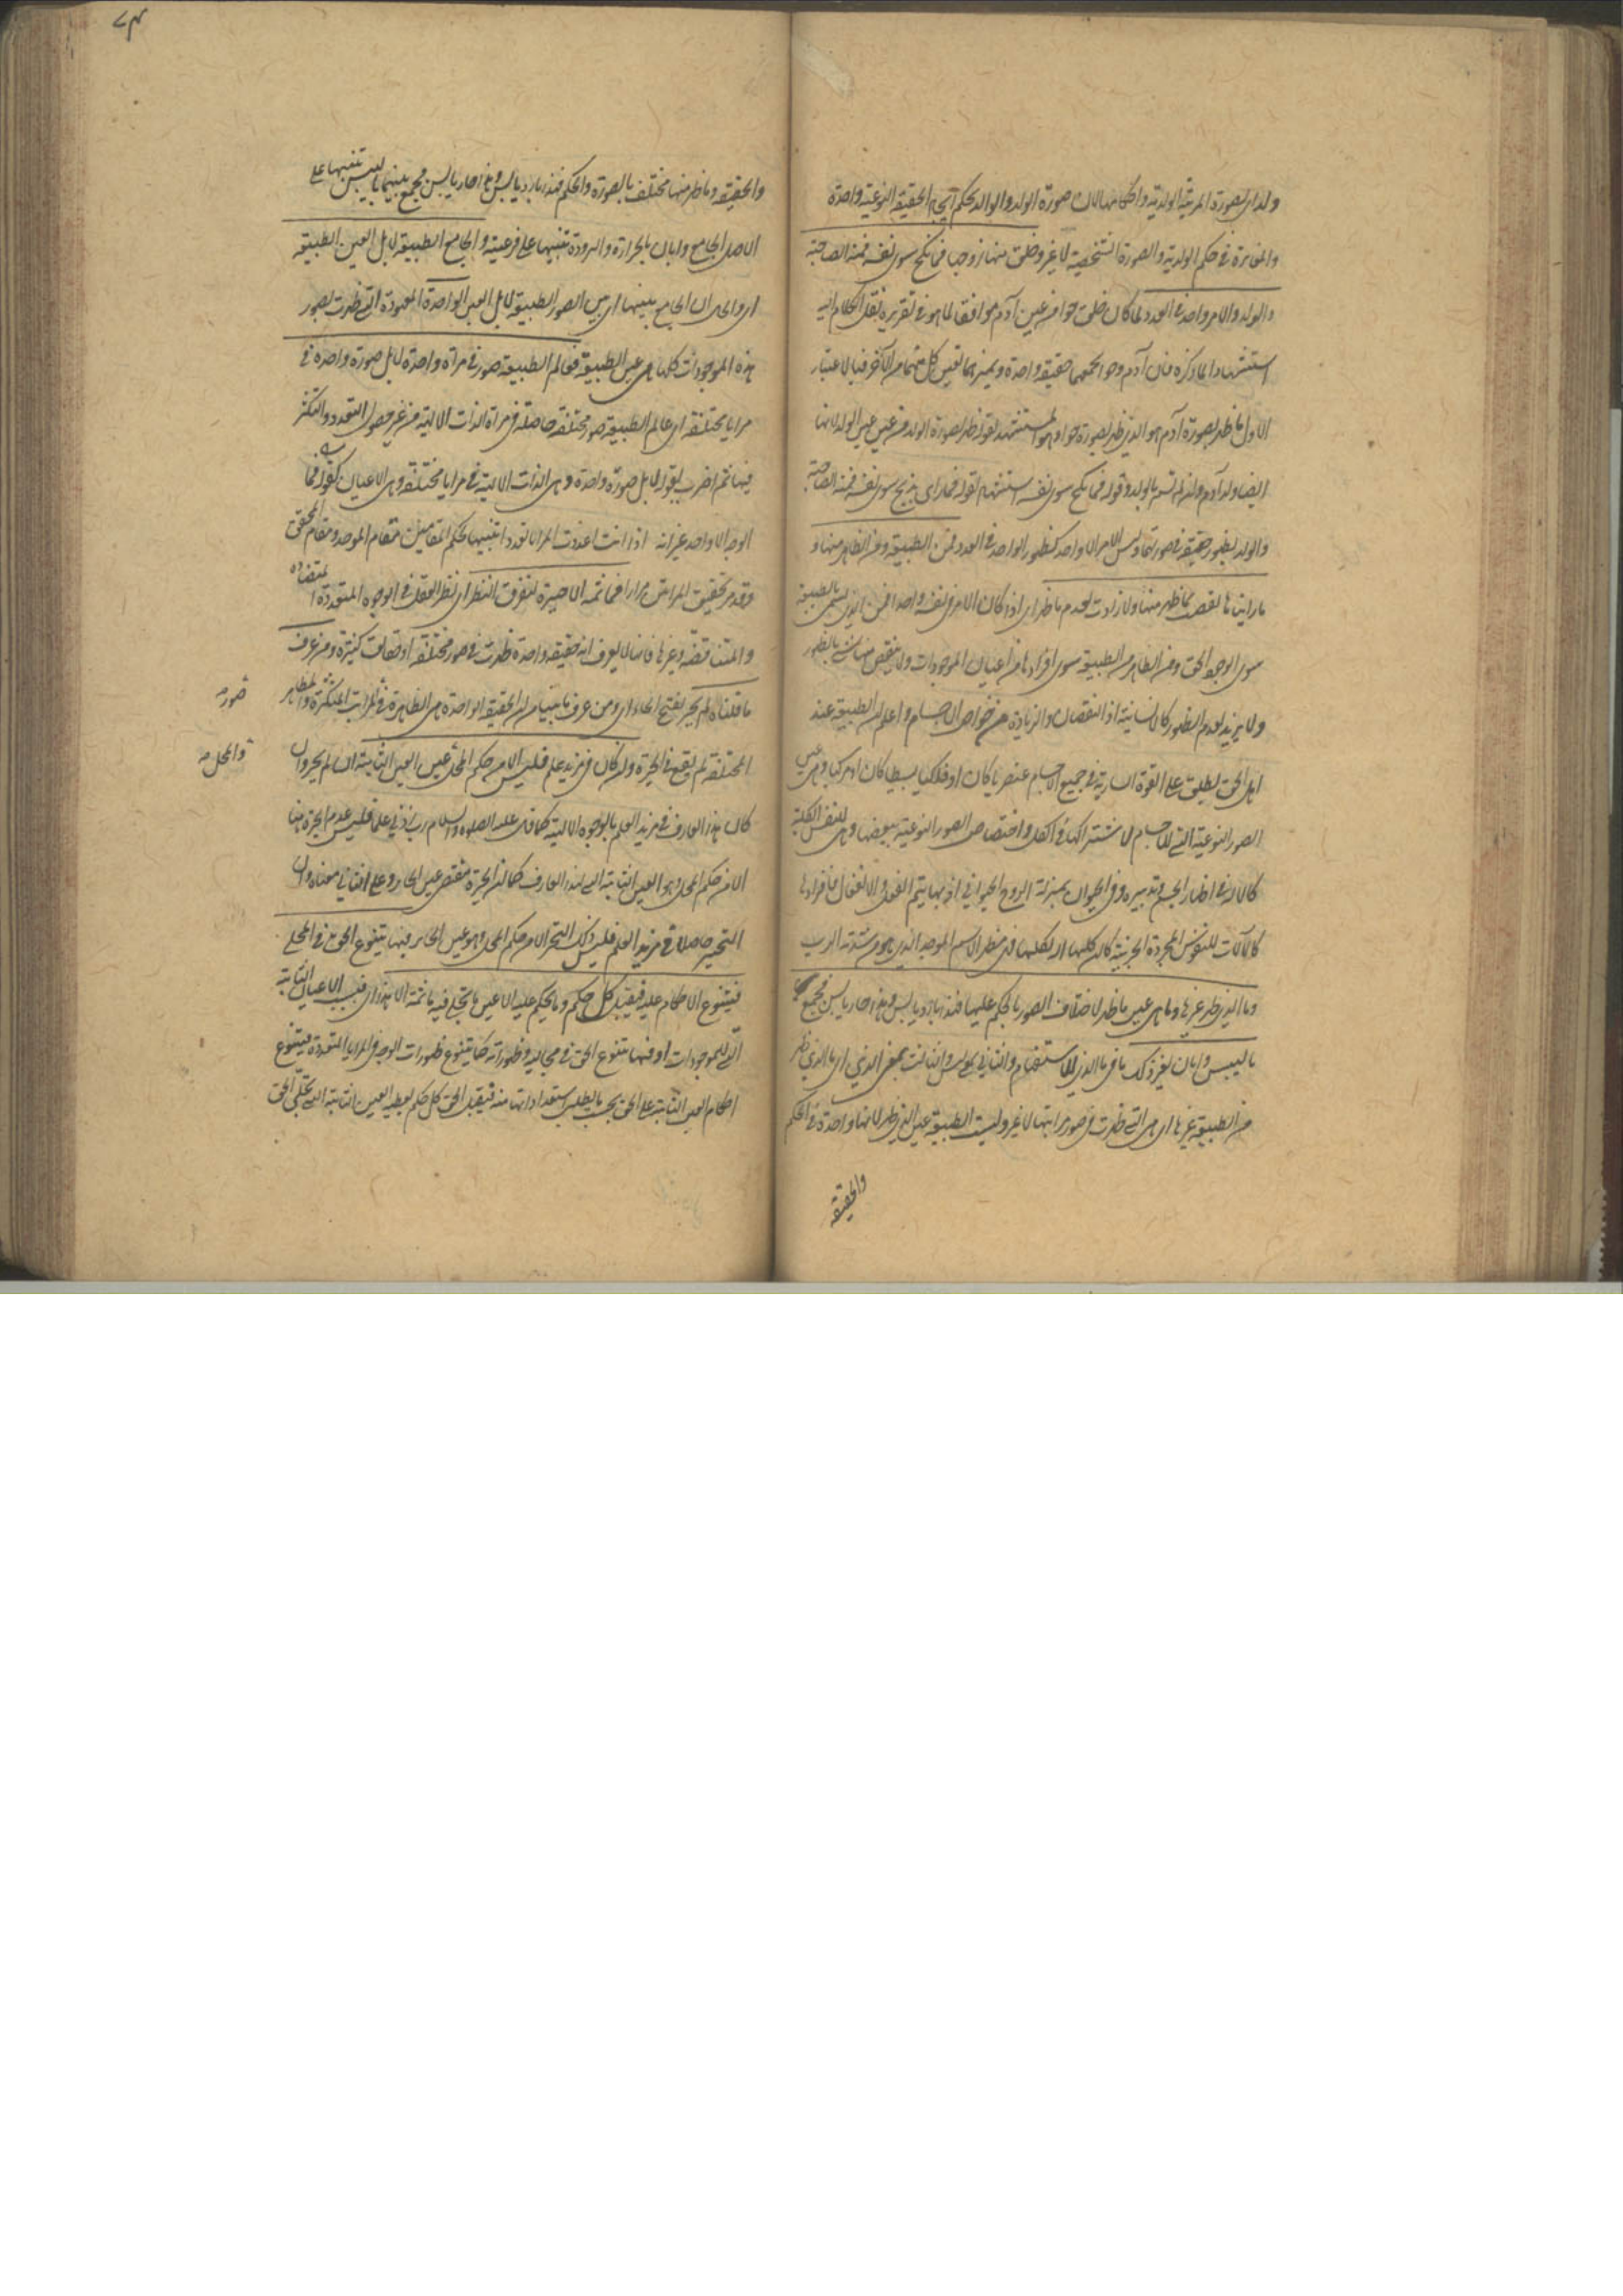 ولد ای بصورة المرتبة الولدیة واحکامها لان صورة الولد والوالد بحکم اتحاد الحقیقة النوعیة واحدة
والمغایرة فی حکم الولدیة والصورة الشخصیة لا غیر وخلق منها زوجها فما نکح سوی نفسه فمنه الصاحبة
والولد والامر واحد فی العدد لما کان خلق حوا من عین آدم موافقا لما هو فی تقریره نقل الکلام الیه
استشهادا لما ذکره فان آدم وحوا یجمعهما حقیقة واحدة ویمیزهما تعین کل منهما من الآخر فبالاعتبار
الاول ما ظهر بصورة آدم هو الذی ظهر بصورة حوا وهو المستشهد لقوله فظهر بصورة الولد من عین عین الولد لانها
ایضا ولد آدم وان لم تسم بالولد وقوله فما نکح سوی نفسه استشهاد لقوله فما رای یذبح سوی نفسه فمنه الصاحبة
والولد بظهور حقیقته فی صورتهما ولیس الامر الا واحد کظهور الواحد فی العدد فمن الطبیعة ومن الظاهر منها و
ما رایناها نقصت بما ظهر منها ولا زادت بعدم ما ظهر ای اذا کان الامر فی نفسه واحدا فمن الذی یسمی بالطبیعة
سوی الوجود الحق ومن الظاهر من الطبیعة سوی افرادها من اعیان الموجودات ولا ینقص منها شئ بالظهور
ولا یزید بعدم الظهور کالانسانیة اذ النقصان والزیادة من خواص الاجسام واعلم ان الطبیعة عند
اهل الحق یطلق علی القوة الساریة فی جمیع الاجسام عنصریا کان او فلکیا بسیطا کان او مرکبا وهی غیر
الصور النوعیة التی للاجسام لاشتراکها فی الکل واختصاص الصور النوعیة ببعضها وهی للنفس الکلیة
کالالة فی اظهار الجسم وتدبیره وفی الحیوان بمنزلة الروح الحیوانی اذ بها یتم الفعل والانفعال فافرادها
کالالات للنفوس المجردة الجزئیة کما ان کلیها آلة لکلیها فهی مظهر الاسم الموجد الذی هو من سدنة الرب
وما الذی ظهر غیرها وما هی عین ما ظهر لاختلاف الصور بالحکم علیها فهذا بارد یابس وهذا حار یابس فجمع
بالیبس وابان بغیر ذلک ما فی ما الذی للاستفهام والثانی بمعنی لیس والثالث بمعنی الذی ای ما الذی ظهر
من الطبیعة غیرها ای هی التی ظهرت فی صور مراتبها لا غیر ولیست الطبیعة عین الذی ظهر لانها واحدة فی الحکم
والحقیقة
والحقیقة وما ظهر منها مختلف بالصورة والحکم فهذا بارد یابس وهذا حار یابس فجمع بینهما بالیبس تنبیها علی
الاصل الجامع وابان بالحرارة والبرودة تنبیها علی فرعیته والجامع الطبیعة لا بل العین الطبیعة
ای والحال ان الجامع بینها ای بین الصور الطبیعة لا بل العین الواحدة المعهودة التی ظهرت بصور
هذه الموجودات کلها هی عین الطبیعة فعالم الطبیعة صور فی مرآة واحدة لا بل صورة واحدة فی
مرایا مختلفة ای عالم الطبیعة صور مختلفة حاصلة فی مرآة الذات الالهیة من غیر حصول التعدد والتکثر
فیها ثم اضرب بقوله لا بل صورة واحدة وهی الذات الالهیة فی مرایا مختلفة وهی الاعیان کقوله فما
الوجه الا واحد غیر انه اذا انت اعددت المرایا تعددا تنبیها بحکم المقامین مقام الموحد ومقام المحقق
وقد مر تحقیق المراتین مرارا فما ثمه الا حیرة لتفرق النظر ای نظر العقل فی الوجوه المتعددة المتضادة
والمتناقضة وغیرها فانه لا یعرف انه حقیقة واحدة ظهرت فی صور مختلفة او حقائق کثیرة ومن عرف
ما قلناه لم یحر بفتح الحاء ای ومن عرف ما بیناه من ان الحقیقة الواحدة هی الظاهرة فی المراتب المتکثرة والمظاهر
المختلفة لم یقع فی الحیرة وان کان فی مزید علم فلیس الا من حکم المحل عین العین الثابتة ای لم یحر وان
کان هذا العارف فی مزید العلم بالوجوه الالهیة کما قال علیه الصلوة والسلام رب زدنی علما فلیس عدم الحیرة هنا
الا من حکم المحل وهو العین الثابتة التی لهذا العارف کما ان الحیرة مقتضی عین الحایر وعلی الثانی معناه وان
التحیر حاصلا فی مزید العلم فلیس ذلک التحیر الا من حکم المحل وهو عین الحایر فبها یتنوع الحق فی المجلی
فیتنوع الاحکام علیه فیقبل کل حکم وما یحکم علیه الا عین ما تجلی فیه ما ثمة الا هذا ای فبسبب الاعیان الثابتة
التی للموجودات او فبها یتنوع الحق فی مجالیه وظهوراته کما یتنوع ظهورات الوجه فی المرایا المتعددة فیتنوع
احکام العین الثابتة علی الحق بحسب ما یطلب استعداداتها منه فیقبل الحق کل حکم یعطیه العین الثابتة التی تجلی الحق